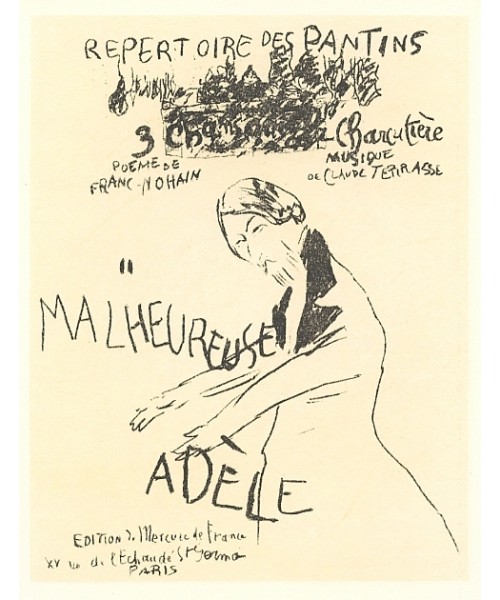 REPERTOIRE DES PANTINS
3 Chansons à la Charcutière
POEME DE
FRANC-NOHAIN
MUSIQUE
DE CLAUDE TERRASSE
"
MALHEUREUSE
ADÈLE
EDITION du Mercure de France
XV rue de l'Echaudé St Germain
PARIS